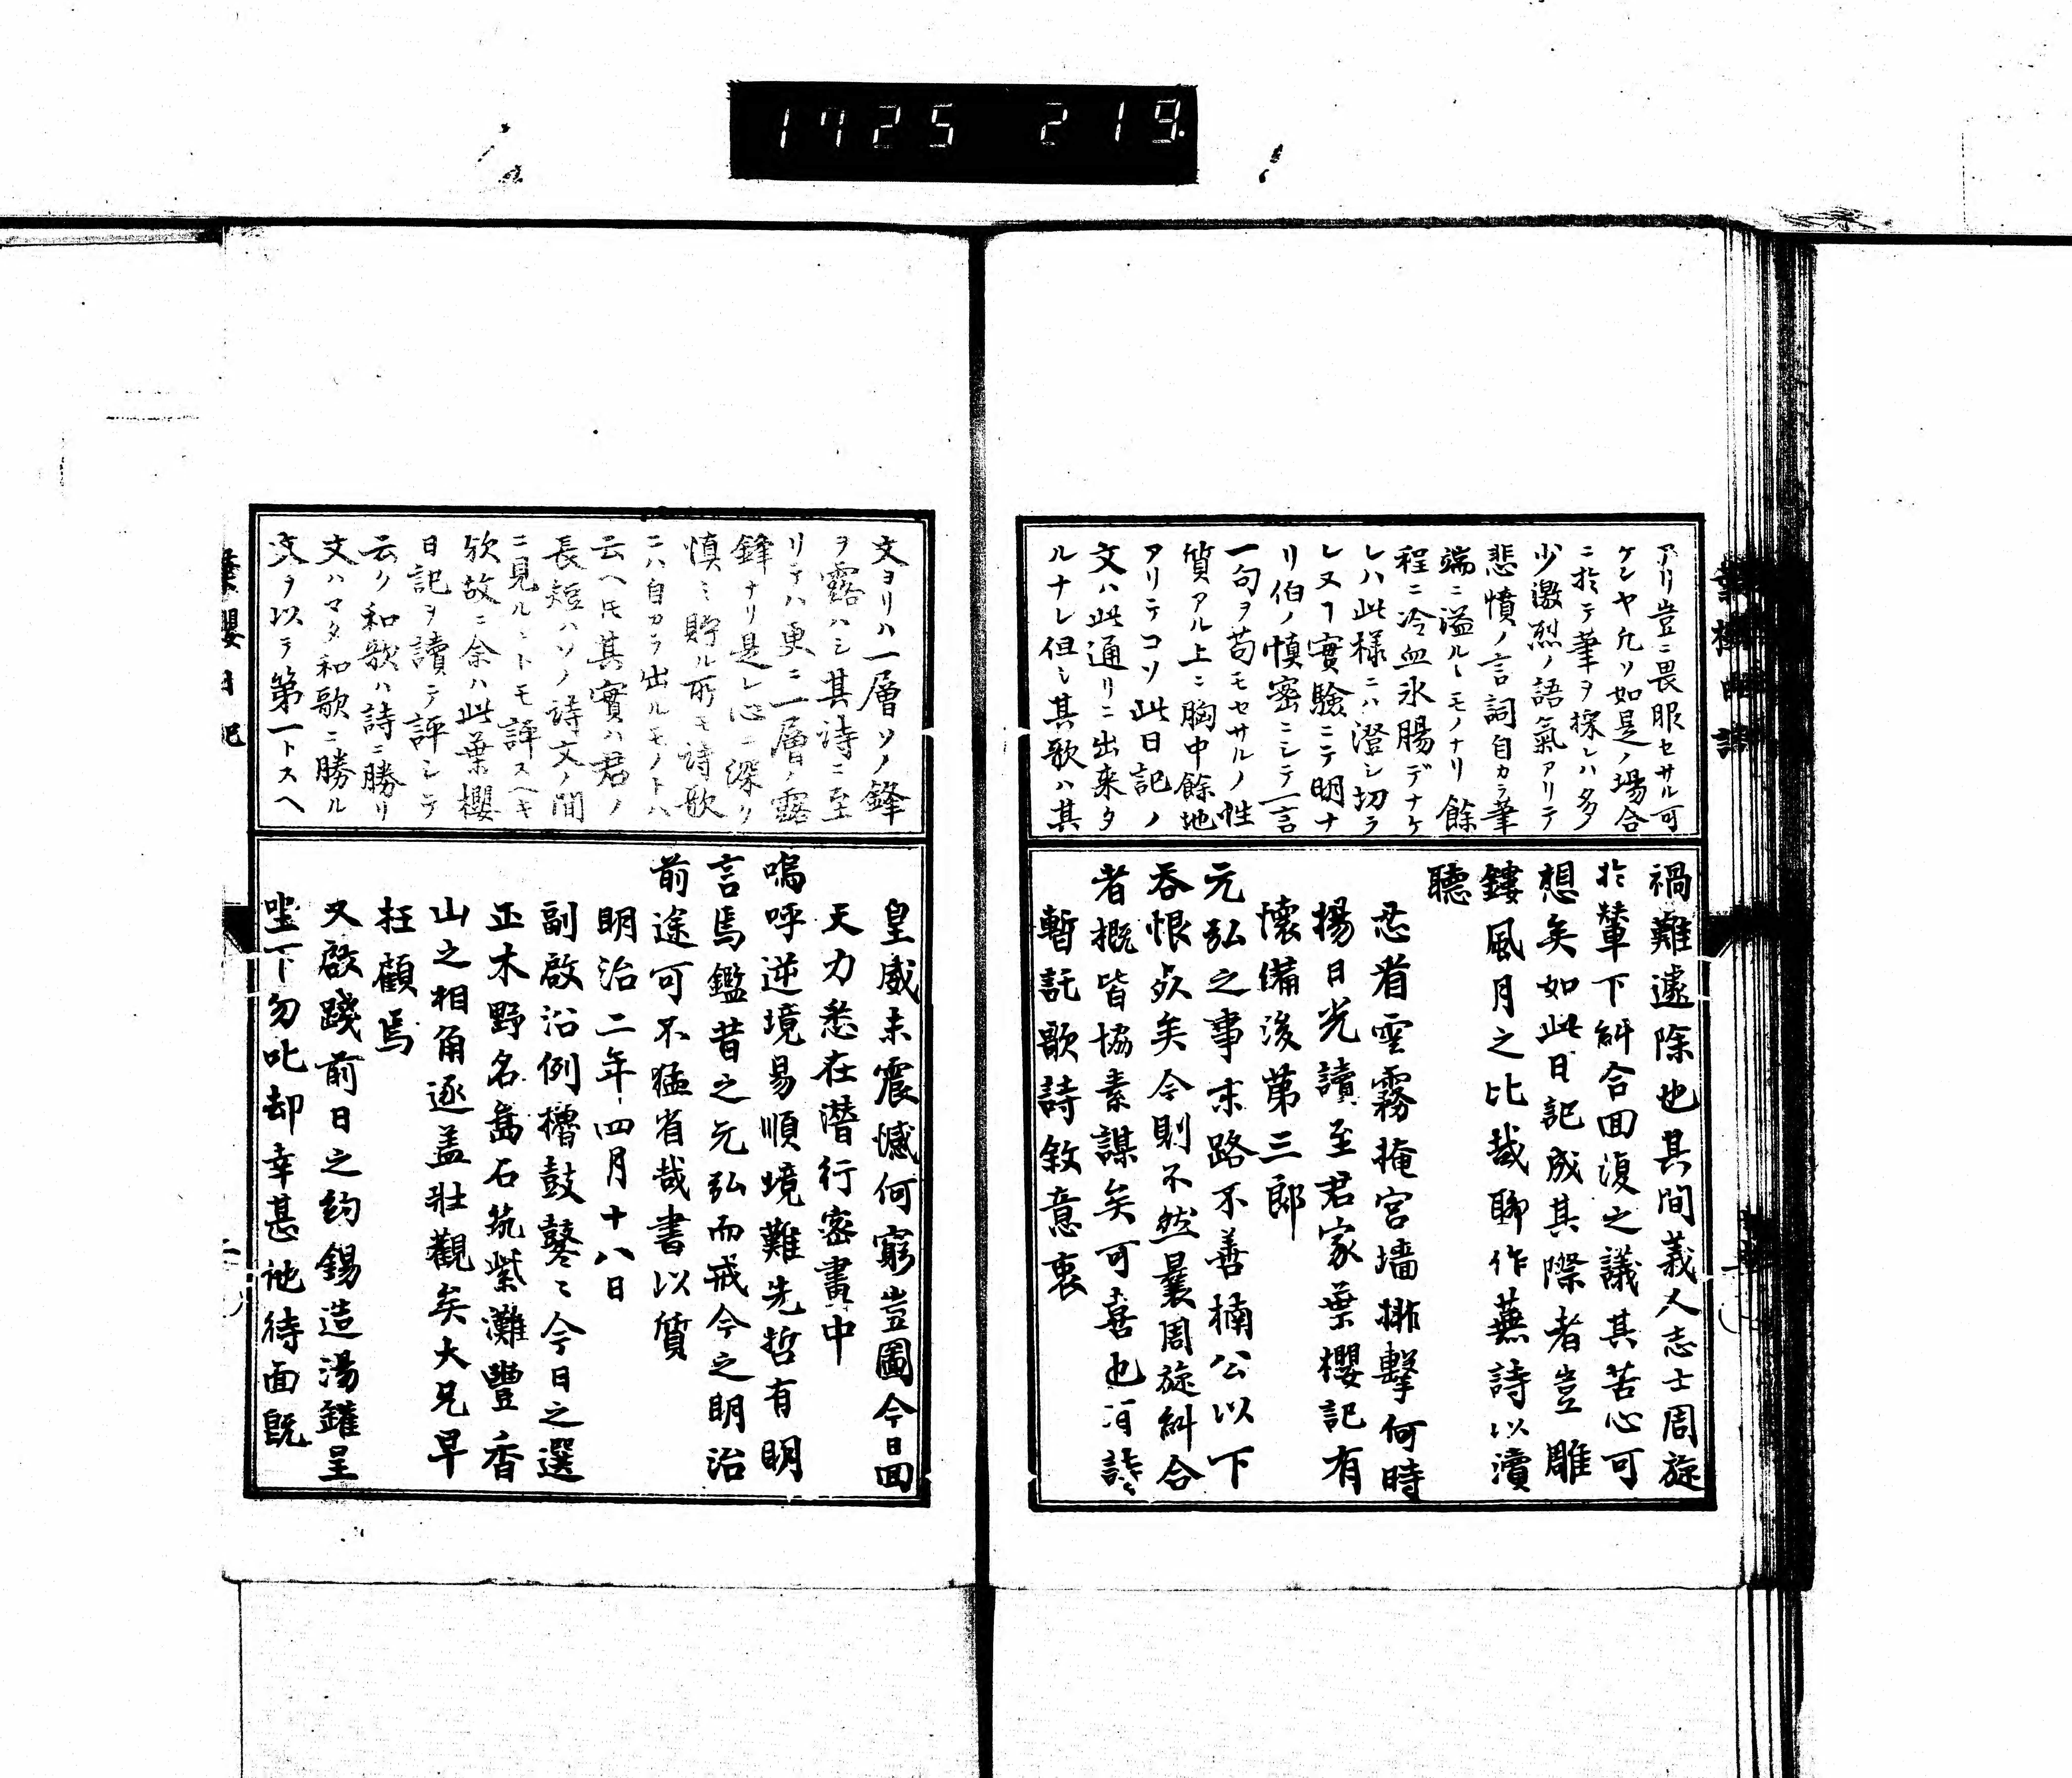 1725 219
アリ豈ニ畏服セサル可
ケンヤ凡ソ如是ノ場合
ニ於テ筆ヲ探レハ多
少激烈ノ語氣アリテ
悲憤ノ言詞自カラ筆
端ニ溢ルヽモノナリ餘
程ニ冷血氷腸デナケ
レハ此様ニハ澄シ切ラ
レヌヿ實驗ニテ明ナ
リ伯ノ慎密ニシテ一言
一句ヲ苟モセサルノ性
質アル上ニ胸中餘地
アリテコソ此日記ノ
文ハ此通リニ出来タ
ルナレ但シ其歌ハ其
禍難遽除也其間義人志士周旋
於輦下糾合回復之議其苦心可
想矣如此日記成其際者豈雕
鏤風月之比哉聊作蕪詩以瀆
聽
忍看雲霧掩宮墻排擊何時
揚日光讀至君家葉櫻記有
懷備後第三郎
元弘之事末路不善楠公以下
吞恨歿矣今則不然曩周旋糾合
者概皆協素謀矣可喜也
暫託歌詩敘意衷
文ヨリハ一層ソノ鋒
ヲ露ハシ其詩ニ至
リテハ更ニ一層ノ露
鋒ナリ是レ心ニ深ク
慎ミ貯ル所モ詩歌
ニハ自カラ出ルモノトハ
云ヘ𪜈其實ハ君ノ
長短ハソノ詩文ノ間
ニ見ルヽトモ評スヘキ
欤故ニ余ハ此葉櫻
日記ヲ讀テ評シテ
云ク和歌ハ詩ニ勝リ
文ハマタ和歌ニ勝ル
文ヲ以テ第一トスヘ
皇威未震憾何窮豈圖今日回
天力悉在潜行密畫中
嗚呼逆境易順境難先哲有明
言焉鑑昔之元弘而戒今之明治
前途可不猛省哉書以質
明治二年四月十八日
副啟沿例櫓鼓鼕〻今日之選
正木野名嶌石荒紫灘豐香
山之相角逐盖壯觀矣大兄早
枉顧焉
又啟踐前日之約錫造湯罐呈
坐下勿叱却幸甚祂待面既
葉櫻日記